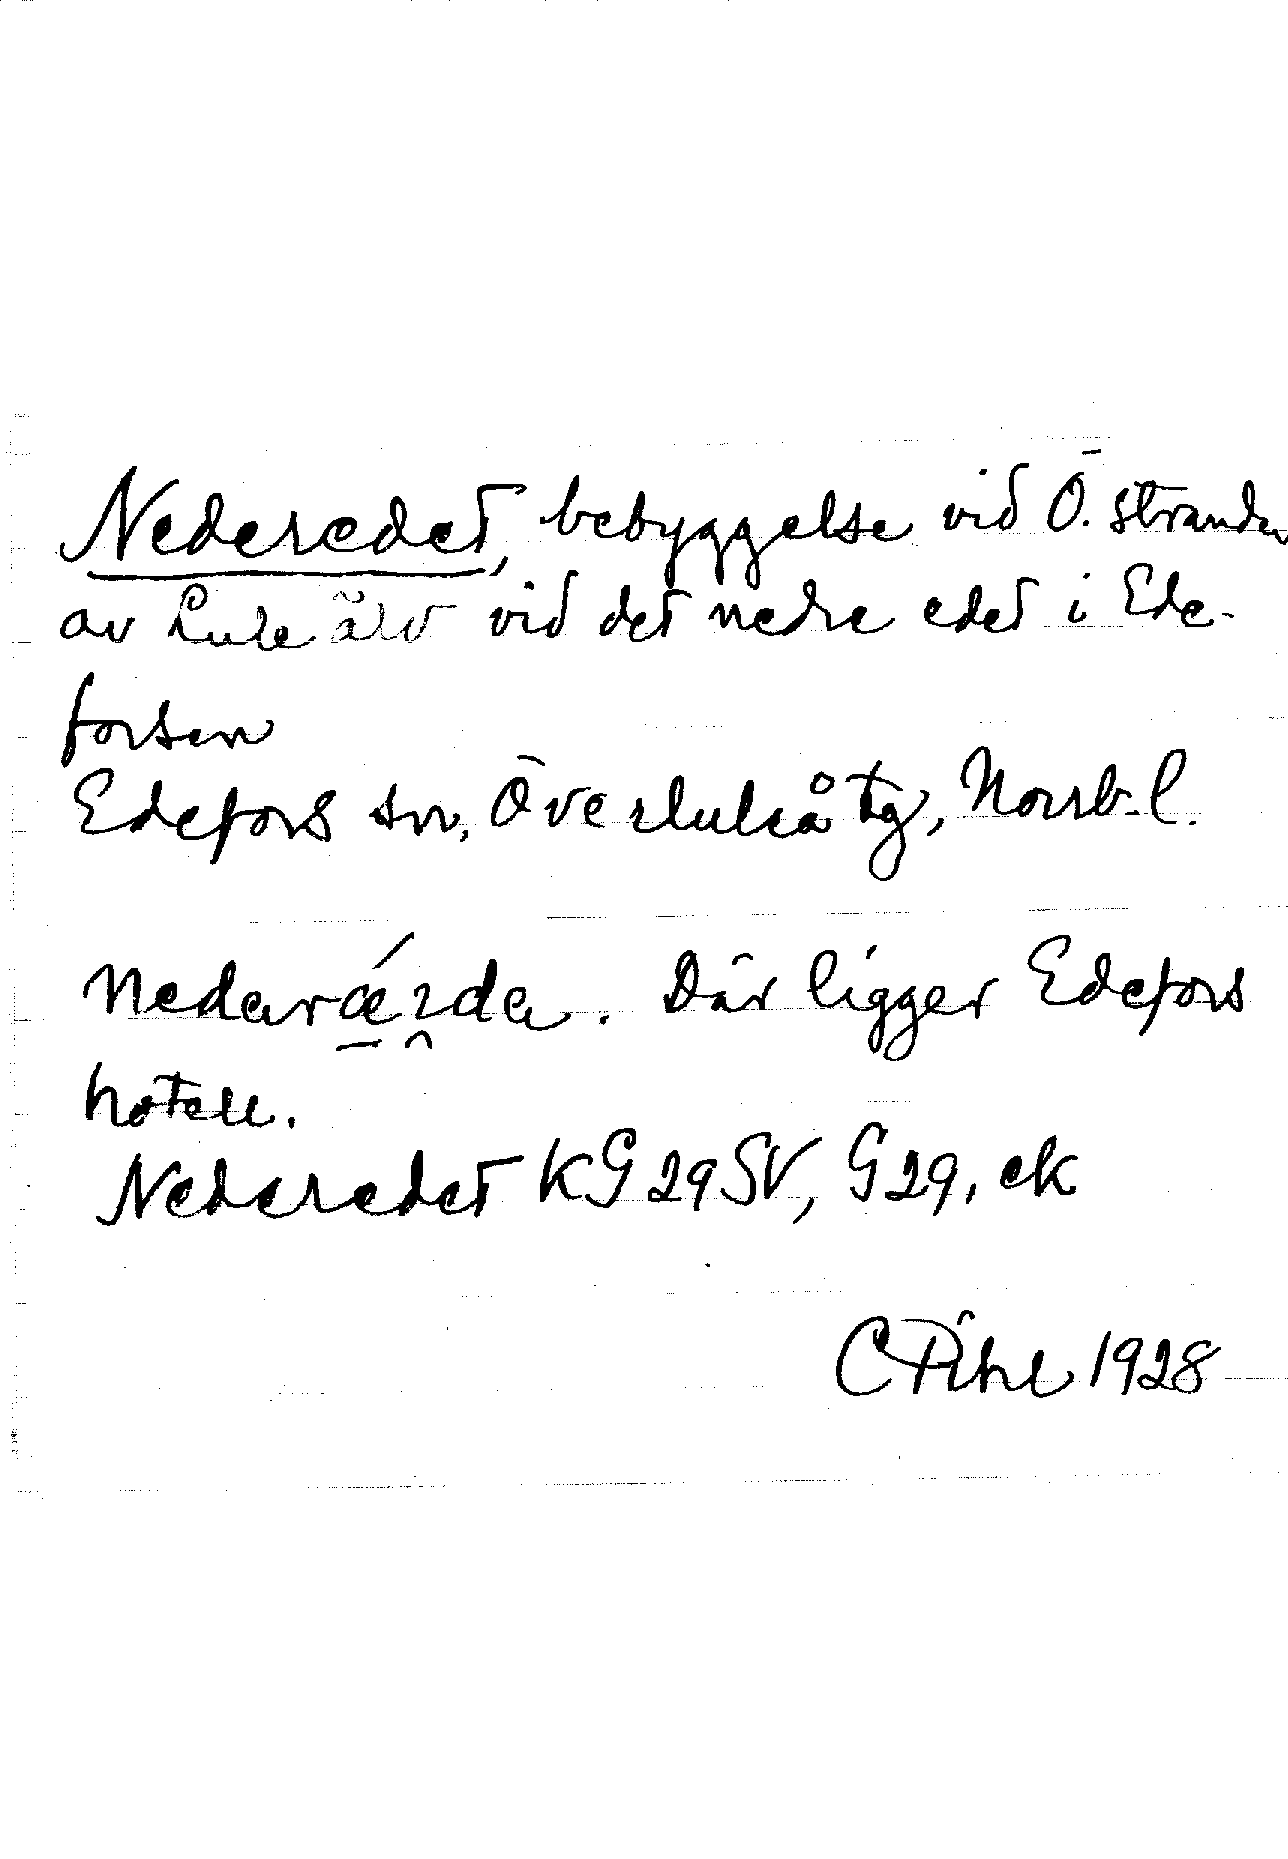 Nederedet, bebyggelse vid Ö. stranden
av Lule älv vid det nedre edet i Ede-
forsen
Edefors sn, Överluleå tg, Norrb. l.
Där ligger Edefors
hotell.
Nederedet KG 29 SV, G29, ek
C Pihl 1928